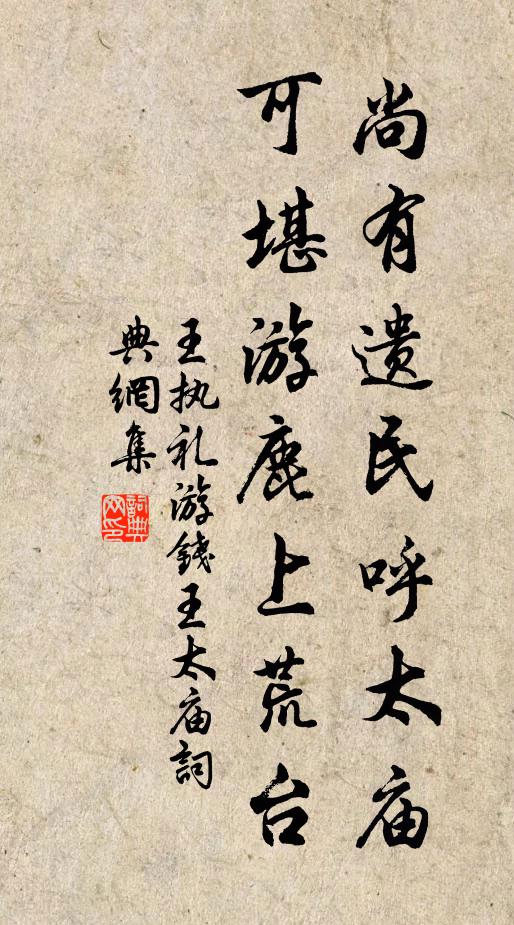 尚有遗民呼太庙
可堪游鹿上荒台
王执礼游錢王太庙詞
典網集
詞典网印